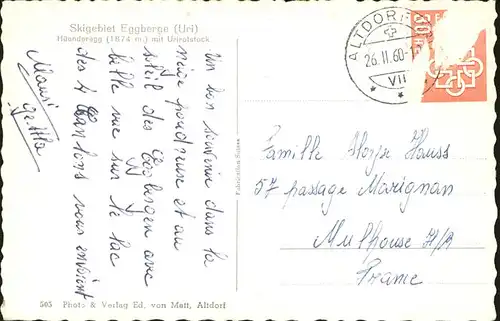 Skigebiet Eggberge (Uri)
Hüenderegg (1874 m.) mit Urirotstock
Un bon souvenir dans la
neige poudreuse et au
soleil des Eggbergen avec
belle vue sur le lac
des 4 Cantons vous envoient
Mausi
ALTDORF
26.II.60
VII
Famille Hauss
57 passage Marignan
Mulhouse H/R
France
505 Photo & Verlag Ed. von Matt, Altdorf